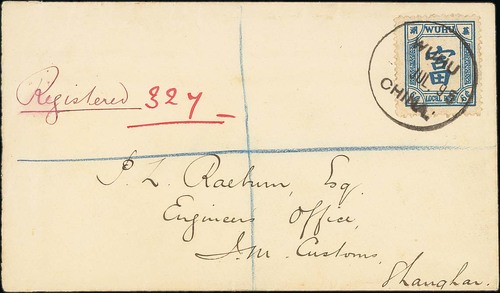 WUHU
富
LOCAL POST
WUHU
JUL. 95
CHINA.
Registered 327
P. L. Raeburn, Esq.
Engineers Office,
I. M. Customs,
Shanghai.